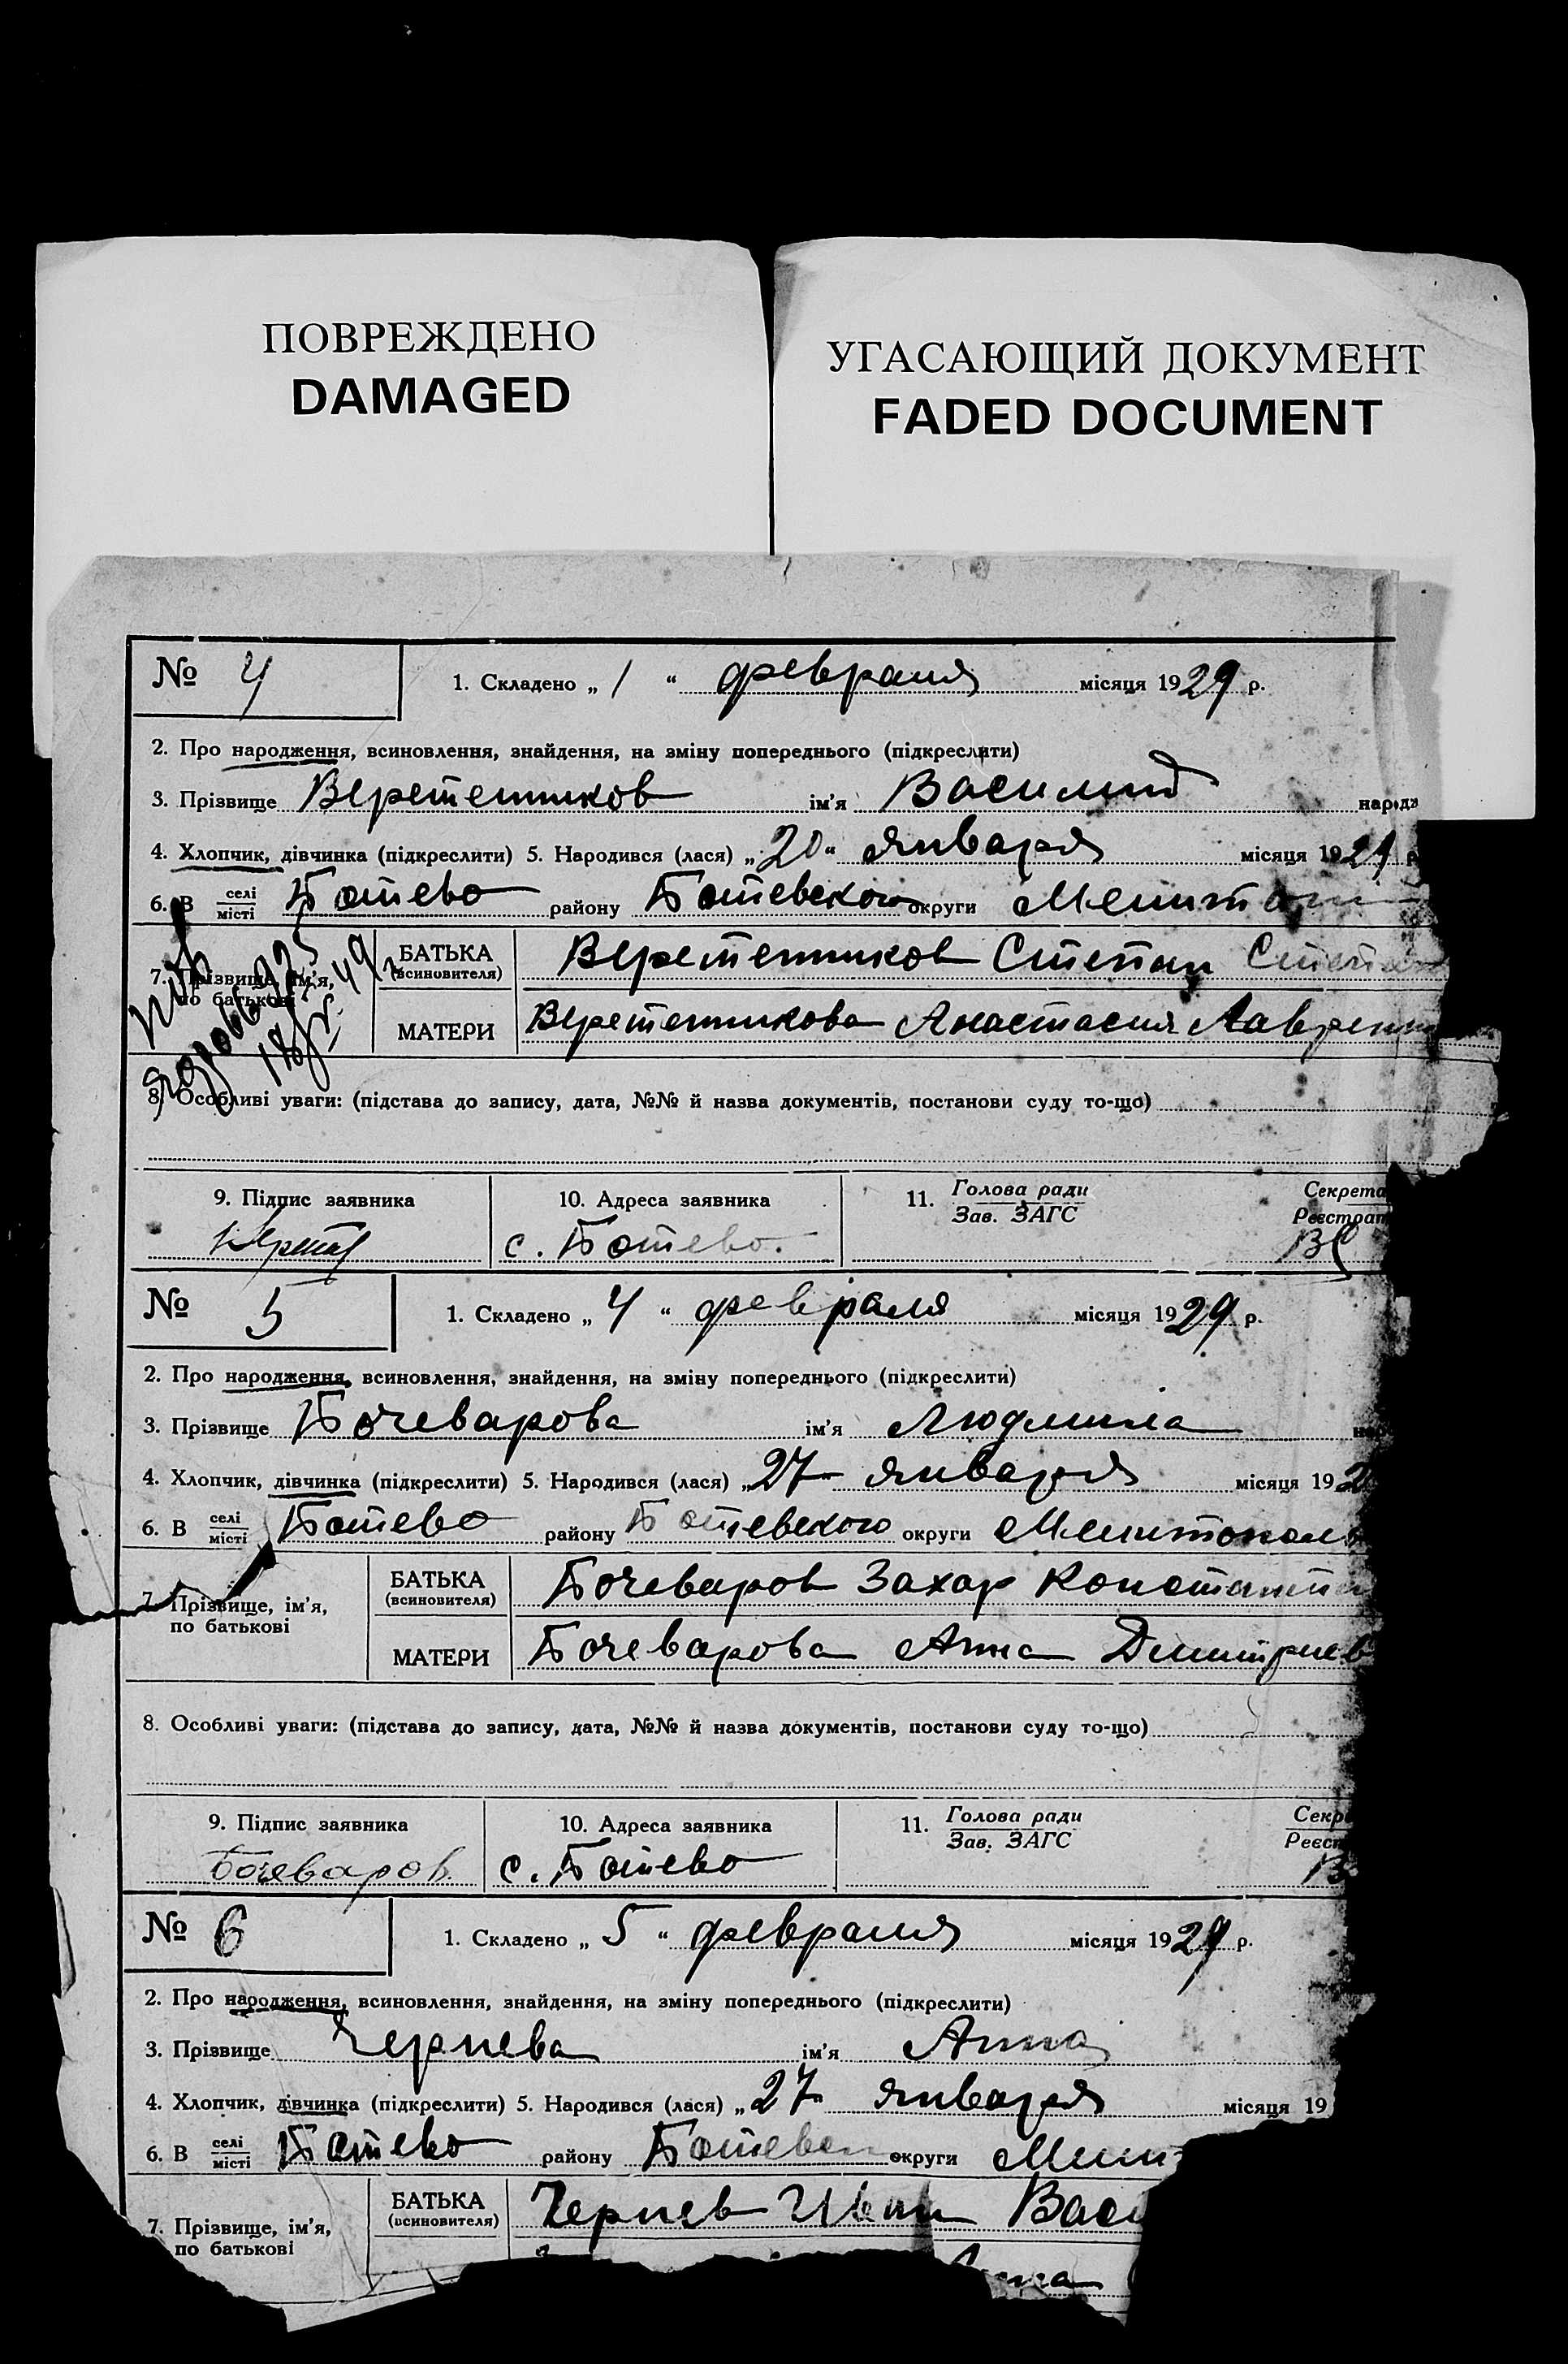 ПОВРЕЖДЕНО
DAMAGED
УГАСАЮЩИЙ ДОКУМЕНТ
FADED DOCUMENT
№ 4
1. Складено „ 1 “ февраля місяця 1929 р.
2. Про народження, всиновлення, знайдення, на зміну попереднього (підкреслити)
3. Прізвище Веретенников ім’я Василий
4. Хлопчик, дівчинка (підкреслити) 5. Народився (лася) „ 20 “ января місяця 1929 р
6. В селі/місті Ботево району Ботевского округи Мелитоп
7. Прізвище, ім’я, по батькові
БАТЬКА (всиновителя) Веретенников Степан Степан
МАТЕРИ Веретенникова Анастасия Лаврен
8. Особливі уваги: (підстава до запису, дата, №№ й назва документів, постанови суду то-що)
9. Підпис заявника 10. Адреса заявника 11. Голова ради Секрета
Зав. ЗАГС Реєстрат
с. Ботево.
№ 5
1. Складено „ 4 “ февраля місяця 1929 р.
2. Про народження, всиновлення, знайдення, на зміну попереднього (підкреслити)
3. Прізвище Бочеварова ім’я Людмила
4. Хлопчик, дівчинка (підкреслити) 5. Народився (лася) „ 27 “ января місяця 192
6. В селі/місті Ботево району Ботевского округи Мелитополь
7. Прізвище, ім’я, по батькові
БАТЬКА (всиновителя) Бочеваров Захар Константи
МАТЕРИ Бочеварова Анна Дмитриев
8. Особливі уваги: (підстава до запису, дата, №№ й назва документів, постанови суду то-що)
9. Підпис заявника 10. Адреса заявника 11. Голова ради Секре
Зав. ЗАГС Реєст
Бочеваров. с. Ботево
№ 6
1. Складено „ 5 “ февраля місяця 1929 р.
2. Про народження, всиновлення, знайдення, на зміну попереднього (підкреслити)
3. Прізвище Чернева ім’я Анна
4. Хлопчик, дівчинка (підкреслити) 5. Народився (лася) „ 27 “ января місяця 19
6. В селі/місті Ботево району Ботевск округи Мели
7. Прізвище, ім’я, по батькові
БАТЬКА (всиновителя) Чернев Иван Васи